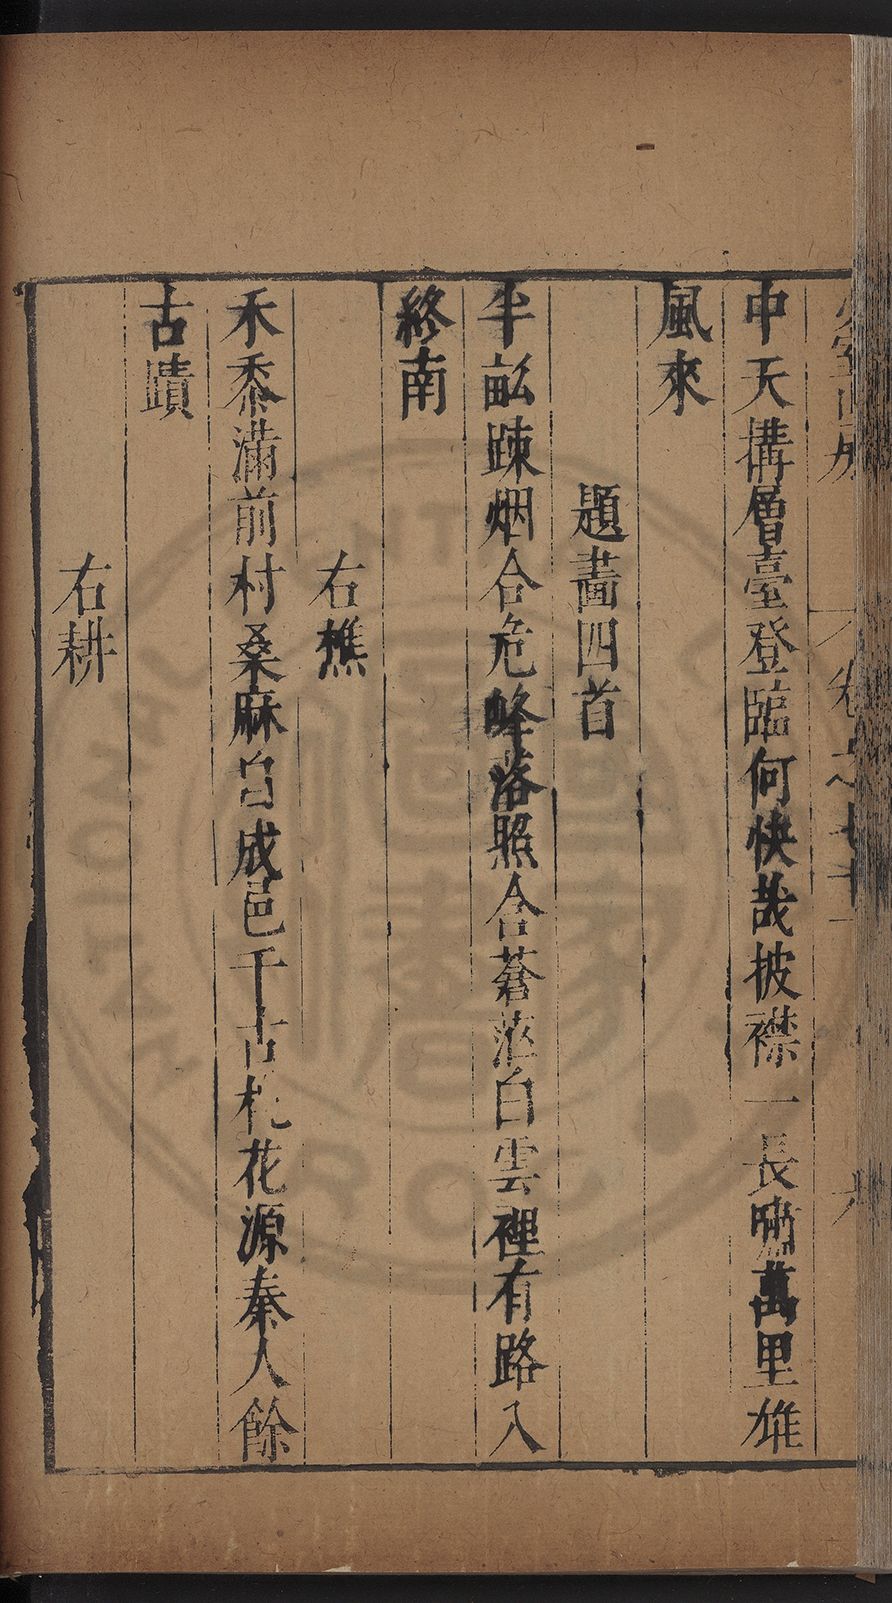 卷之七十一
六
中天構層臺登臨何快哉披襟一長嘯萬里雄
風來
題畫四首
半畝踈烟合危峰落照含蒼茫白雲裡有路入
終南
右樵
禾黍滿前村桑麻自成邑千古桃花源秦人餘
古蹟
右耕